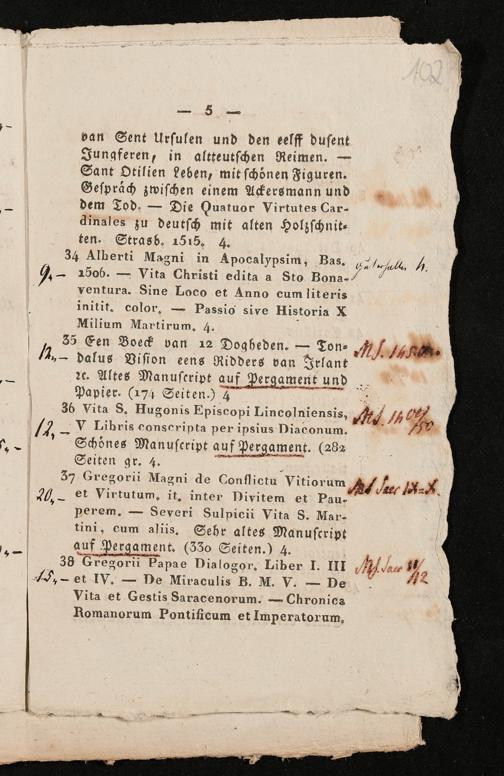 102
— 5 —
van Sent Ursulen und den eelff dusent
Jungferen, in altteutschen Reimen. —
Sant Otilien Leben, mit schönen Figuren.
Gespräch zwischen einem Ackersmann und
dem Tod. — Die Quatuor Virtutes Car-
dinales zu deutsch mit alten Holzschnit-
ten. Strasb. 1515. 4.
34 Alberti Magni in Apocalypsim, Bas.
9,— 1506. — Vita Christi edita a Sto Bona-
ventura. Sine Loco et Anno cum literis
initit. color. — Passio sive Historia X
Milium Martirum. 4.
35 Een Boeck van 12 Dogheden. — Ton-
12,— dalus Vision eens Ridders van Irlant
ꝛc. Altes Manuscript auf Pergament und
Papier. (174 Seiten.) 4
36 Vita S. Hugonis Episcopi Lincolniensis,
12,— V Libris conscripta per ipsius Diaconum.
Schönes Manuscript auf Pergament. (282
Seiten gr. 4.
37 Gregorii Magni de Conflictu Vitiorum
20,— et Virtutum, it. inter Divitem et Pau-
perem. — Severi Sulpicii Vita S. Mar-
tini, cum aliis. Sehr altes Manuscript
auf Pergament. (330 Seiten.) 4.
38 Gregorii Papae Dialogor. Liber I. III
15,— et IV. — De Miraculis B. M. V. — De
Vita et Gestis Saracenorum. — Chronica
Romanorum Pontificum et Imperatorum,
MS. 1400/50
MS Saec IX-X.
MS. Saec 11/12